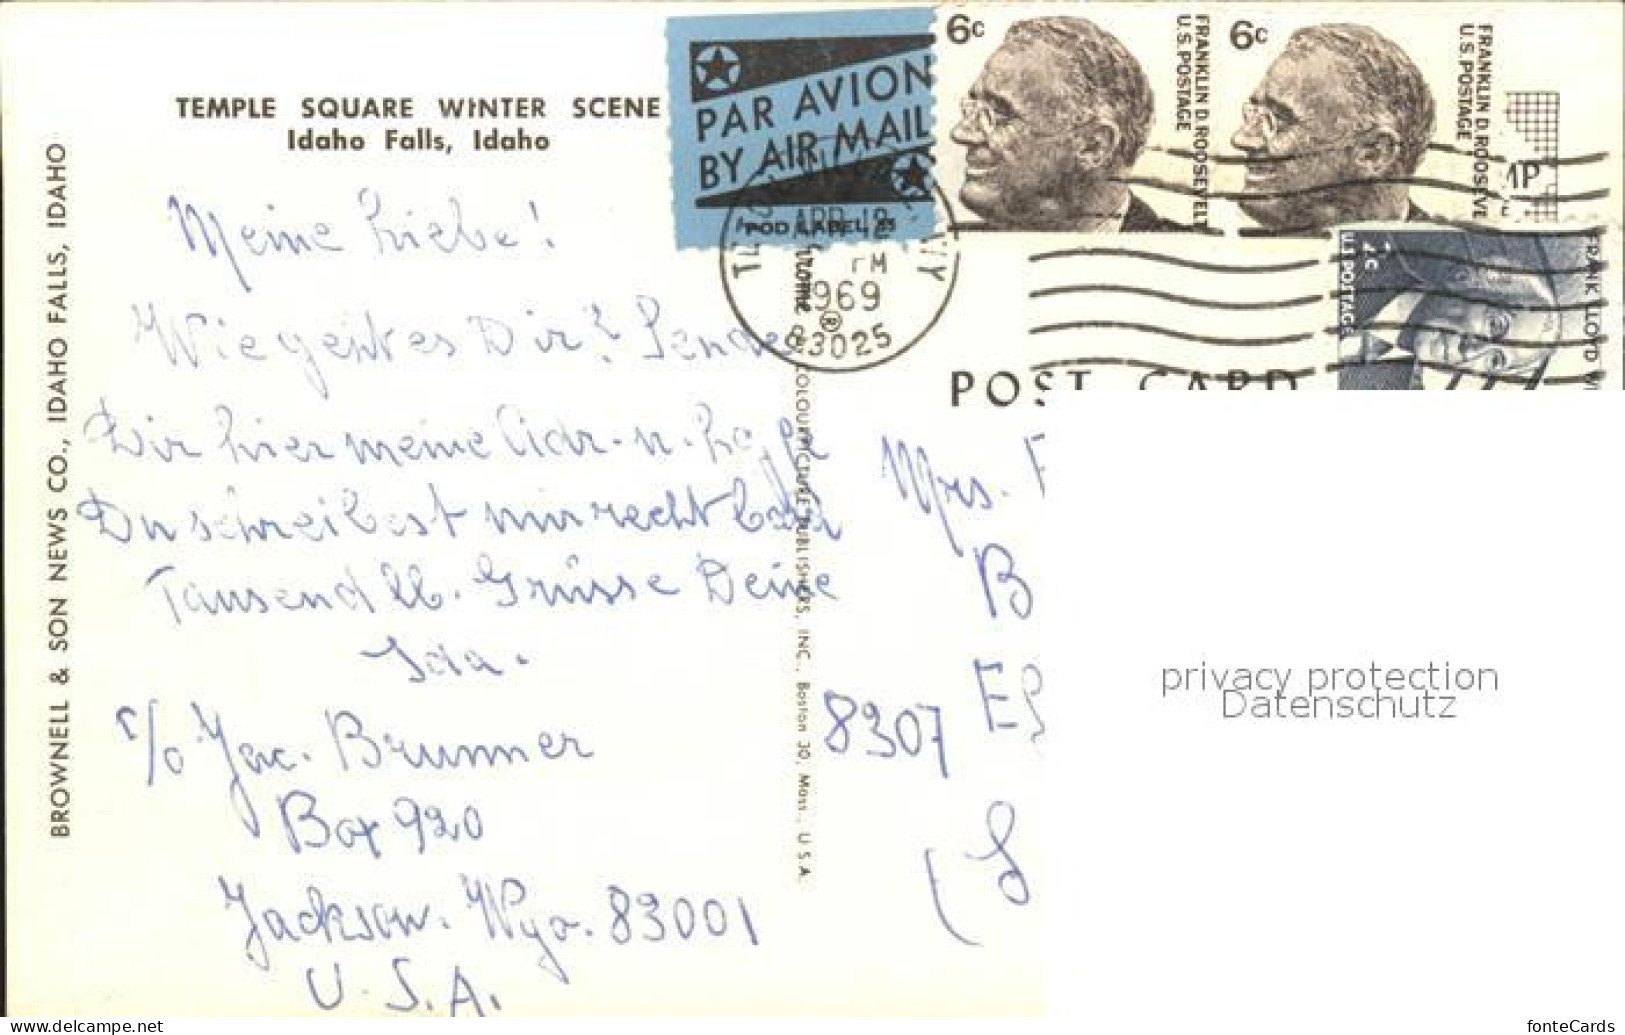 TEMPLE SQUARE WINTER SCENE
Idaho Falls, Idaho
BROWNELL & SON NEWS CO., IDAHO FALLS, IDAHO
Meine Liebe!
Wie geht es Dir? Sende
Dir hier meine Adr. u. hoffe
Du schreibest mir recht bald
Tausend lb. Grüsse Deine
Ida.
c/o Jac. Brunner
Box 920
Jackson. Wyo. 83001
U.S.A.
PAR AVION
BY AIR MAIL
POD LABEL
6c
FRANKLIN D. ROOSEVELT
U.S. POSTAGE
6c
FRANKLIN D. ROOSEVE
U.S. POSTAGE
MP
2c
U.S. POSTAGE
FRANK LLOYD WI
APR 18
PM
1969
83025
COLOURPICTURE PUBLISHERS, INC., Boston 30, Mass., U.S.A.
POST CARD
Mrs.
B
8307
(S
privacy protection
Datenschutz
www.delcampe.net
fonteCards